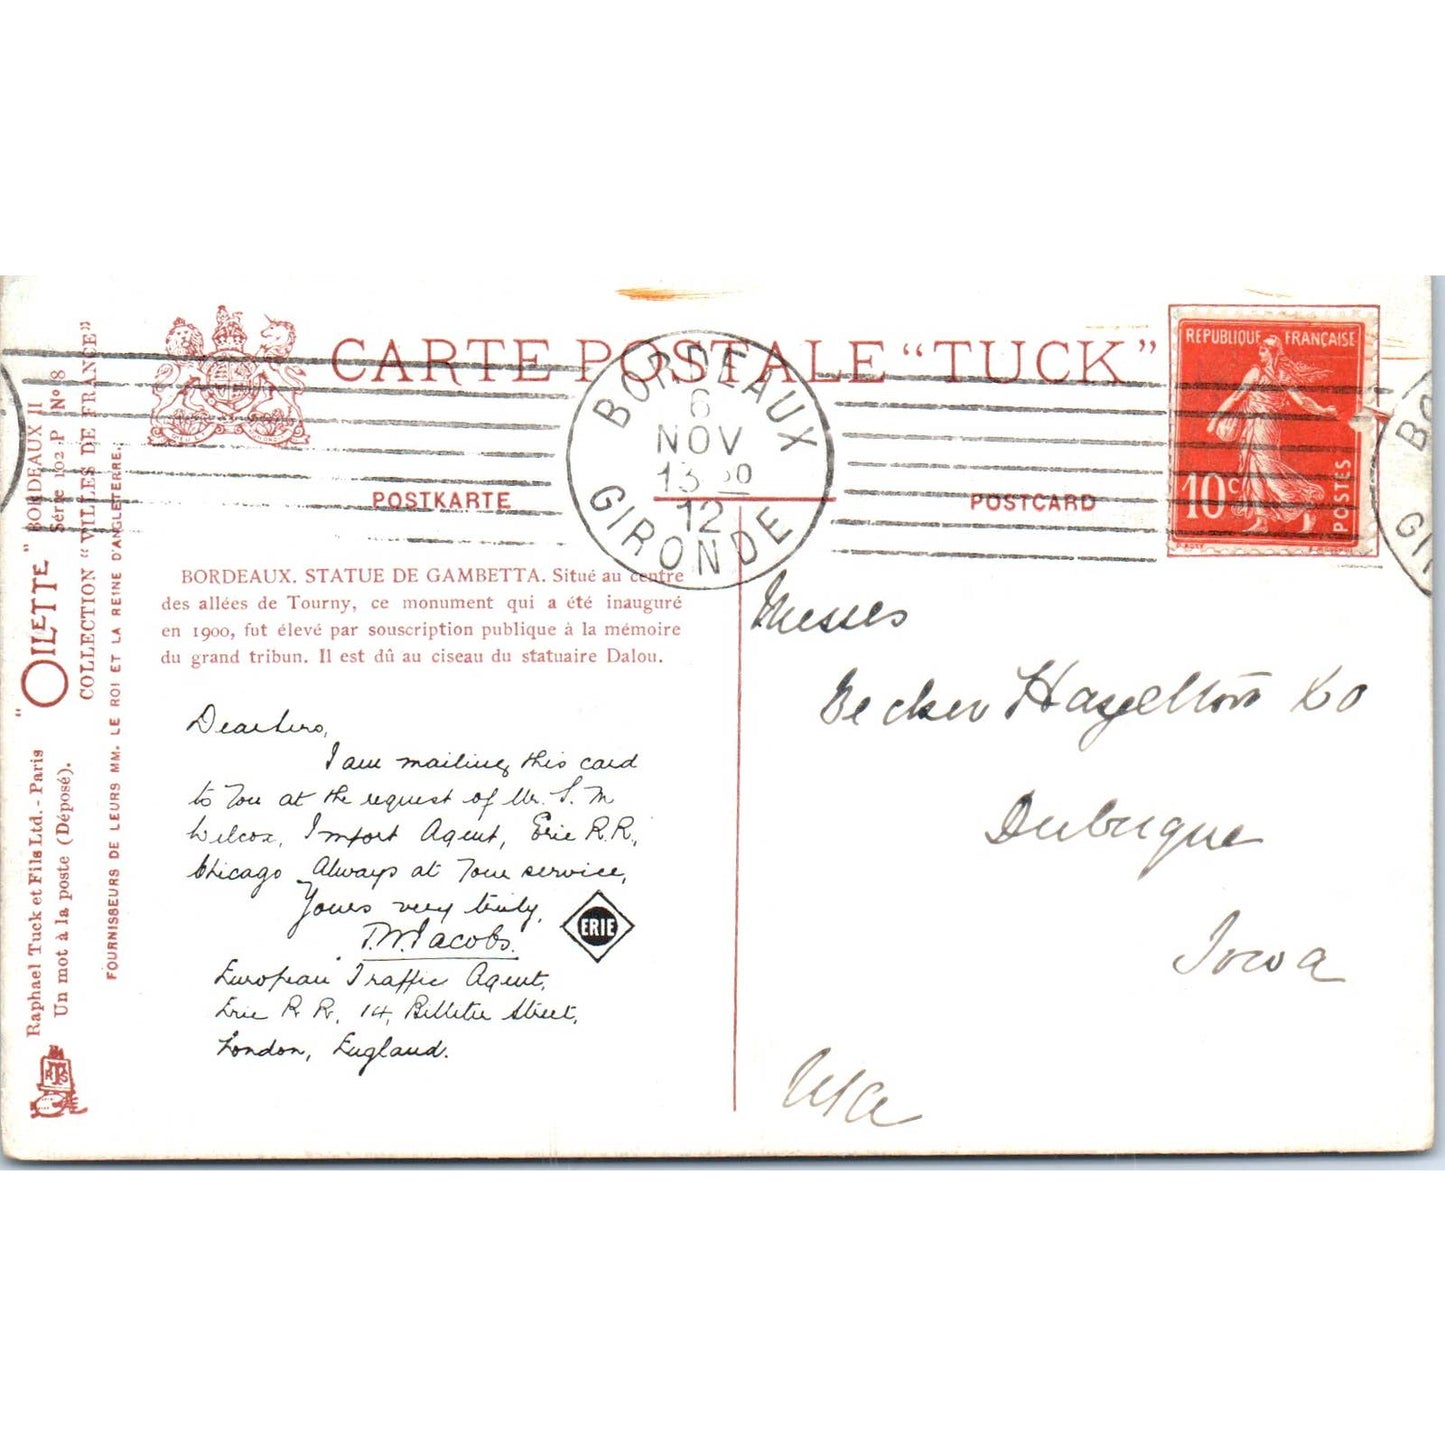 CARTE POSTALE “TUCK”
POSTKARTE
POSTCARD
BORDEAUX
6
NOV
13
12
GIRONDE
REPUBLIQUE FRANÇAISE
10c
POSTES
BORDEAUX. STATUE DE GAMBETTA. Situé au centre
des allées de Tourny, ce monument qui a été inauguré
en 1900, fut élevé par souscription publique à la mémoire
du grand tribun. Il est dû au ciseau du statuaire Dalou.
Dear Sirs,
I am mailing this card
to You at the request of Mr. S. M
Wilcox, Import Agent, Erie R.R.,
Chicago Always at Your service,
Yours very truly,
T.W. Jacobs.
ERIE
European Traffic Agent,
Erie R R, 14, Billiter Street,
London, England.
Messrs
Becker Hazelton Co
Dubuque
Iowa
USA
"OILETTE" BORDEAUX II
Série 102 P Nº 8
COLLECTION “VILLES DE FRANCE”
FOURNISSEURS DE LEURS MM. LE ROI ET LA REINE D'ANGLETERRE.
Raphael Tuck et Fils Ltd. - Paris
Un mot à la poste (Déposé).
RTS